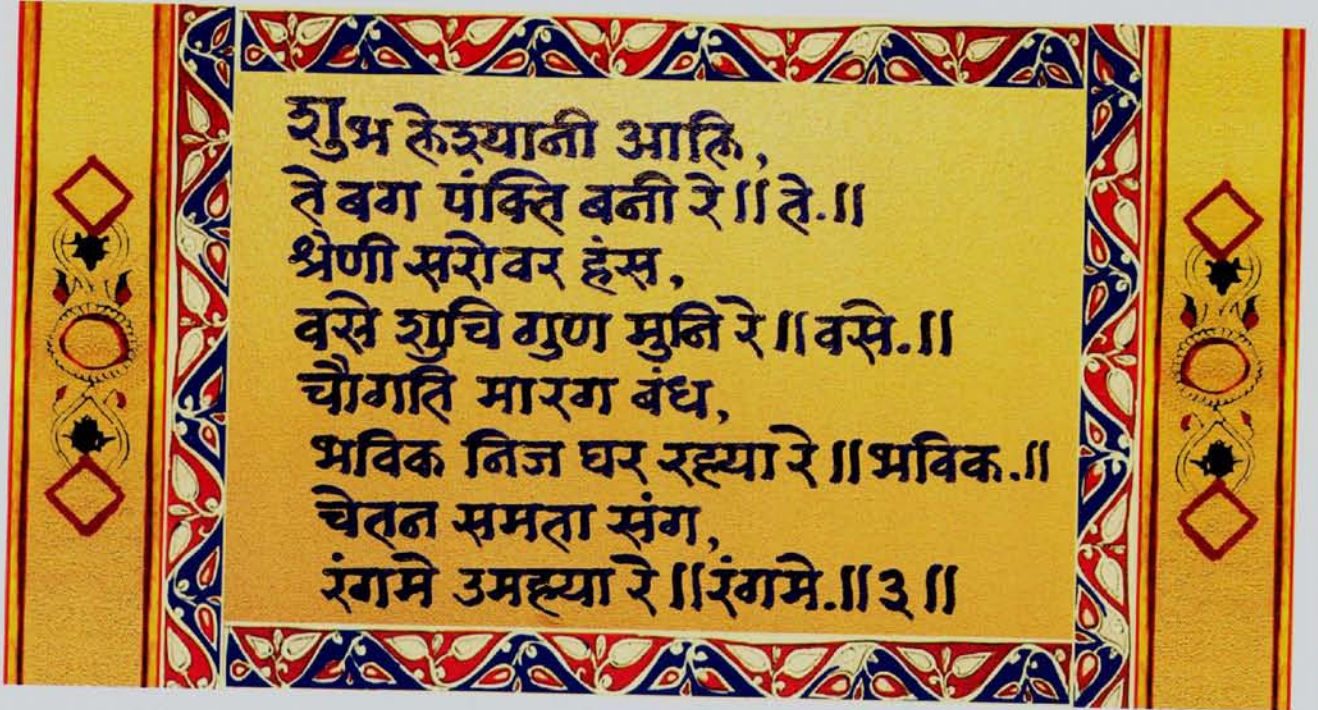 शुभ लेश्यानी आलि,
ते बग पंक्ति बनी रे ॥ ते. ॥
श्रेणी सरोवर हंस,
वसे शुचि गुण मुनि रे ॥ वसे. ॥
चौगति मारग बंध,
भविक निज घर रह्या रे ॥ भविक. ॥
चेतन समता संग,
रंगमे उमह्या रे ॥ रंगमे. ॥ ३ ॥